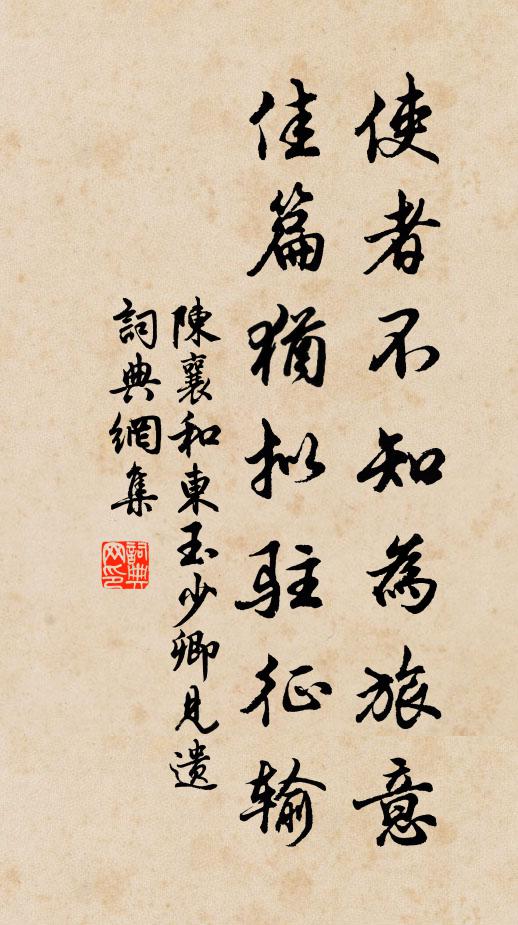 使者不知為旅意
佳篇猶拟駐征輸
陳襄和東玉少卿見遺
詞典網集
詞典網印